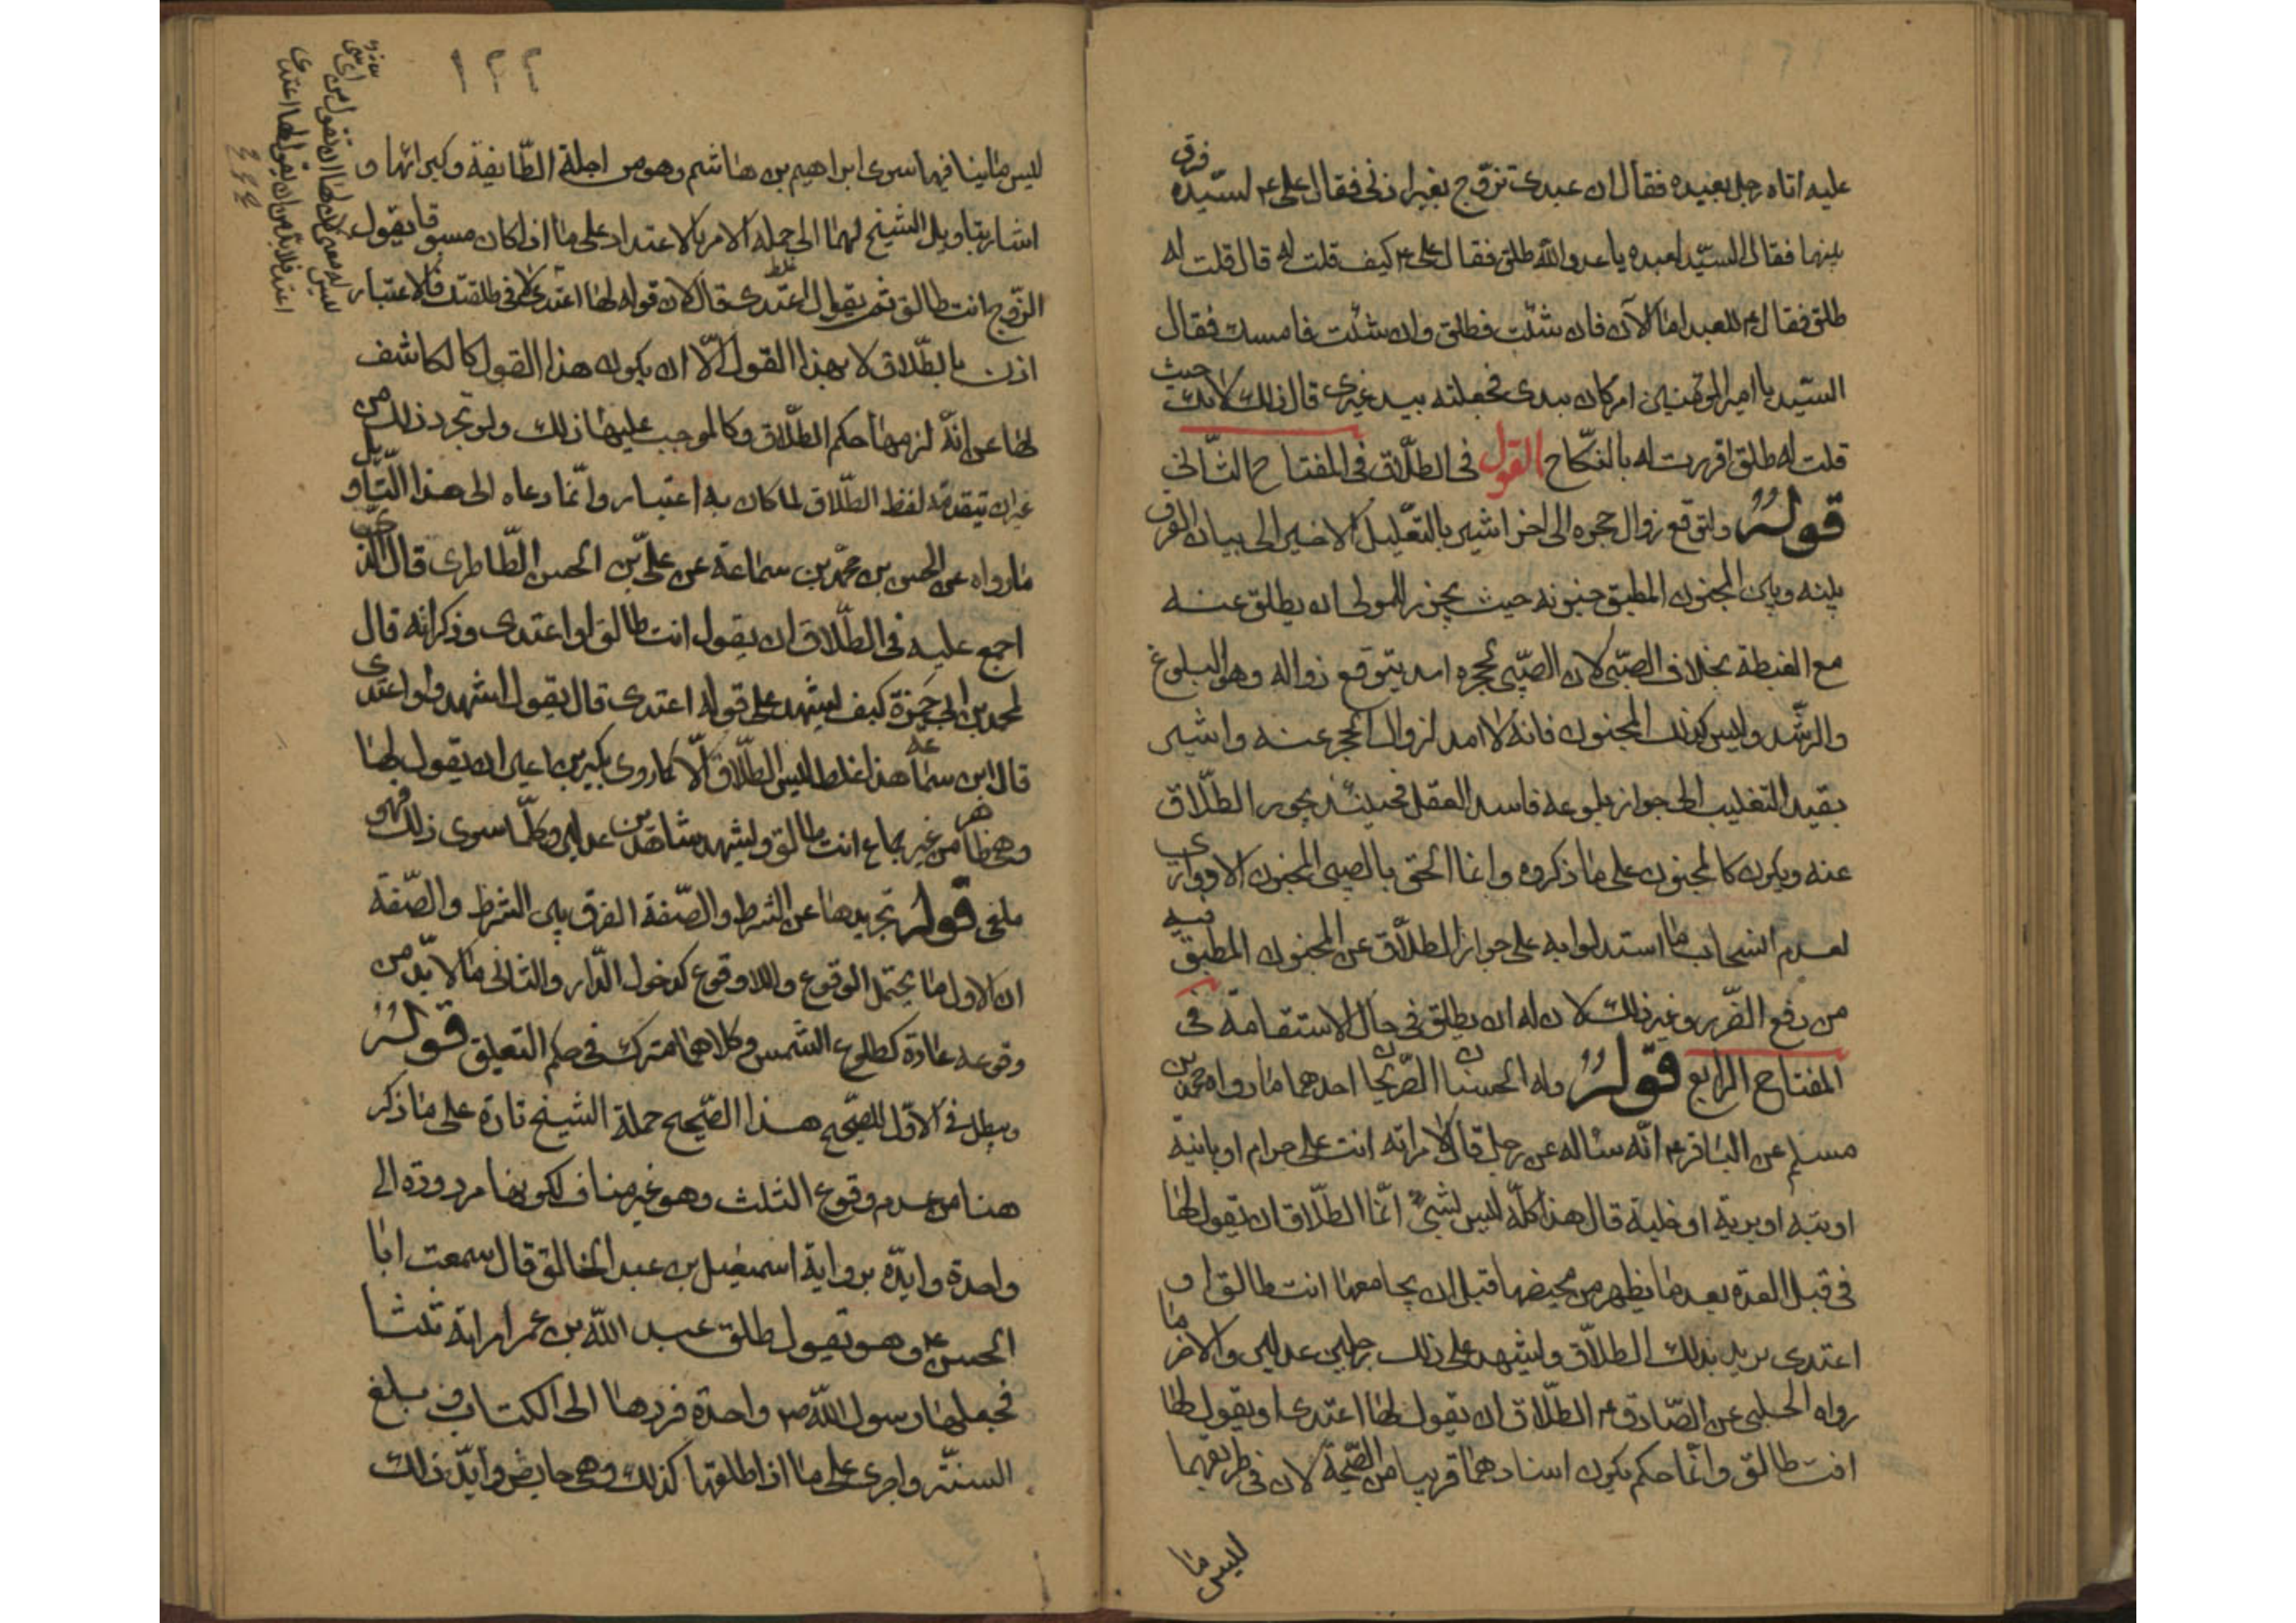 عليه اتاه رجل بعبده فقال ان عبدى تزوّج بغير اذنى فقال على ع لسيّده فرق
بينهما فقال السيّد لعبده يا عدو الله طلق فقال على ع كيف قلت له قال قلت له
طلق فقال ع للعبد اما الآن فان شئت فطلق وان شئت فامسك فقال
السيّد يا امير المؤمنين امر كان بيدى فجعلته بيد غيرى قال ذلك لانك حيث
قلت له طلق اقررت له بالنكاح القول فى الطلاق فى المفتاح الثانى
قوله ولتوقع زوال حجره الى اخر اشير بالتعليل الاخير الى بيان الفرق
بينه وبين المجنون المطبق جنونه حيث يجوز للمولى ان يطلق عنه
مع الغبطة بخلاف الصبى لان الصبى لحجره امد يتوقع زواله وهو البلوغ
والرشد وليس كذلك المجنون فانه لا امد لزوال الحجر عنه واشير
بقيد التغليب الى جواز بلوغه فاسد العقل فحينئذ يجوز الطلاق
عنه ويكون كالمجنون على ما ذكروه وانما الحق بالصبى المجنون الادوارى
لعدم انسحاب ما استدلوا به على جواز الطلاق عن المجنون المطبق فيه
من دفع الضرر وغير ذلك لان له ان يطلق فى حال الاستقامة فى
المفتاح الرابع قوله وله الحسنان الصريحان احدهما ما رواه محمد بن
مسلم عن الباقر ع انه سئاله عن رجل قال لامراته انت على حرام او باينة
او بتة او برية او خلية قال هذا كله ليس بشىء انما الطلاق ان يقول لها
فى قبل العدة بعد ما يطهر من محيضها قبل ان يجامعها انت طالق او
اعتدى يريد بذلك الطلاق ويشهد على ذلك رجلين عدلين والاخر ما
رواه الحلبى عن الصادق ع الطلاق ان يقول لها اعتدى او يقول لها
انت طالق وانما حكم بكون اسنادهما قريبا من الصحة لان فى طريقهما
ليس ما
١٢٢
ليس ما لينا فيها سوى ابراهيم بن هاشم وهو من اجلة الطايفة وكبرائها و
اشار بتاويل الشيخ لهما الى حمله الامر بالاعتداد على ما اذا كان مسبوقا بقول
الزوج انت طالق ثم يقول اعتدى قال لان قوله لها اعتدى لانى طلقتك فالاعتبار
اذن بالطلاق لا بهذا القول الا ان يكون هذا القول كالكاشف
لها عن انه لزمها حكم الطلاق وكالموجب عليها ذلك ولو تجرد ذلك من
غير ان يتقدمه لفظ الطلاق لما كان به اعتبار وانما دعاه الى هذا التاويل
ما رواه عن الحسن بن محمد بن سماعة عن على بن الحسن الطاطرى قال الذى
اجمع عليه فى الطلاق ان يقول انت طالق او اعتدى وذكر انه قال
لمحمد بن ابى حمزة كيف يشهد على قوله اعتدى قال يقول اشهدوا اعتدى
قال ابن سماعة هذا غلط ليس الطلاق الا كما روى بكير بن اعين ان يقول لها
وهى طاهر من غير جماع انت طالق ويشهد شاهدين عدلين وكل ما سوى ذلك فهو
ملغى قوله تجريدها عن الشرط والصفة الفرق بين الشرط والصفة
ان الاول ما يحتمل الوقوع واللاوقوع كدخول الدار والثانى ما لا بد من
وقوعه عادة كطلوع الشمس وكلاهما مشترك فى حكم التعليق قوله
ويبطل فى الاول للصحيح هذا الصحيح حمله الشيخ تارة على ما ذكر
هنا من عدم وقوع الثلث وهو غير مناف لكونها مردودة الى
واحدة وايده برواية اسمعيل بن عبد الخالق قال سمعت ابا
الحسن ع وهو يقول طلق عبد الله بن عمر امراته ثلثا
فجعلها رسول الله ص واحدة فردها الى الكتاب و
السنة واخرى على ما اذا طلقها كذلك وهى حايض وايد ذلك